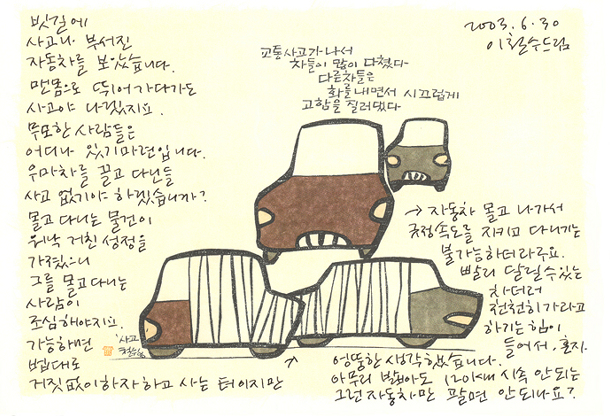 빗길에
사고나 부서진
자동차를 보았습니다.
맨몸으로 뛰어가다가도
사고야 나겠지요.
무모한 사람들은
어디나 있기마련입니다.
우마차를 끌고 다닌들
사고 없기야 하겠습니까?
몰고 다니는 물건이
워낙 거친 성정을
가졌으니
그를 몰고다니는
사람이
조심해야지요.
가능하면
법대로
거짓없이하자하고 사는 터이지만
→ 자동차 몰고 나가서
규정속도를 지키고 다니기는
불가능하더라구요.
빨리 달릴수있는
차더러
천천히가라고
하기는힘이
들어서, 혼자.
엉뚱한 생각했습니다.
아무리 밟아도 120km 시속 안되는
그런자동차만 팔면 안되나요?
교통사고가나서
차들이 많이 다쳤다
다른차들은
화를내면서 시끄럽게
고함을 질러댔다
2003. 6. 30
이철수드림
'사고'
철수